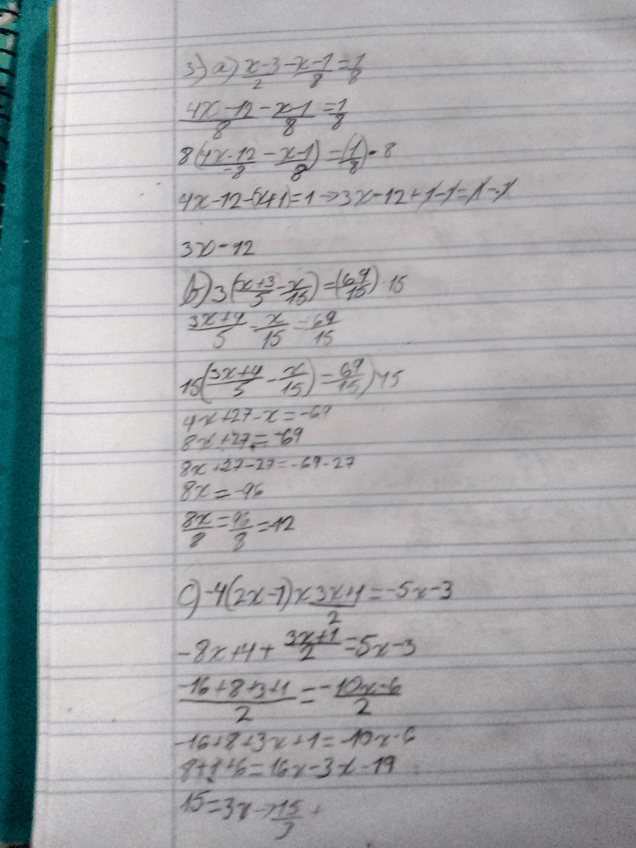 3) a) x-3/2 - x-1/8 = 1/8
4x-12/8 - x-1/8 = 1/8
8(4x-12/8 - x-1/8) = (1/8)·8
4x-12-(x+1)=1 → 3x-12+1-1=1-1
3x-12
b) 3(x+3/5 - x/15) = (69/15)·15
3x+9/5 - x/15 = -69/15
15(3x+9/5 - x/15) = 69/15)15
4x+27-x=-69
8x+27=-69
8x+27-27=-69-27
8x=-96
8x/8 = 96/8 = 12
c) -4(2x-1)x 3x+1/2 = -5x-3
-8x+4+ 3x+1/2 = 5x-3
-16+8+3+1/2 = -10x-6/2
-16+8+3x+1=-10x-6
8+1+6=16x-3x-19
15=3x → 15/3